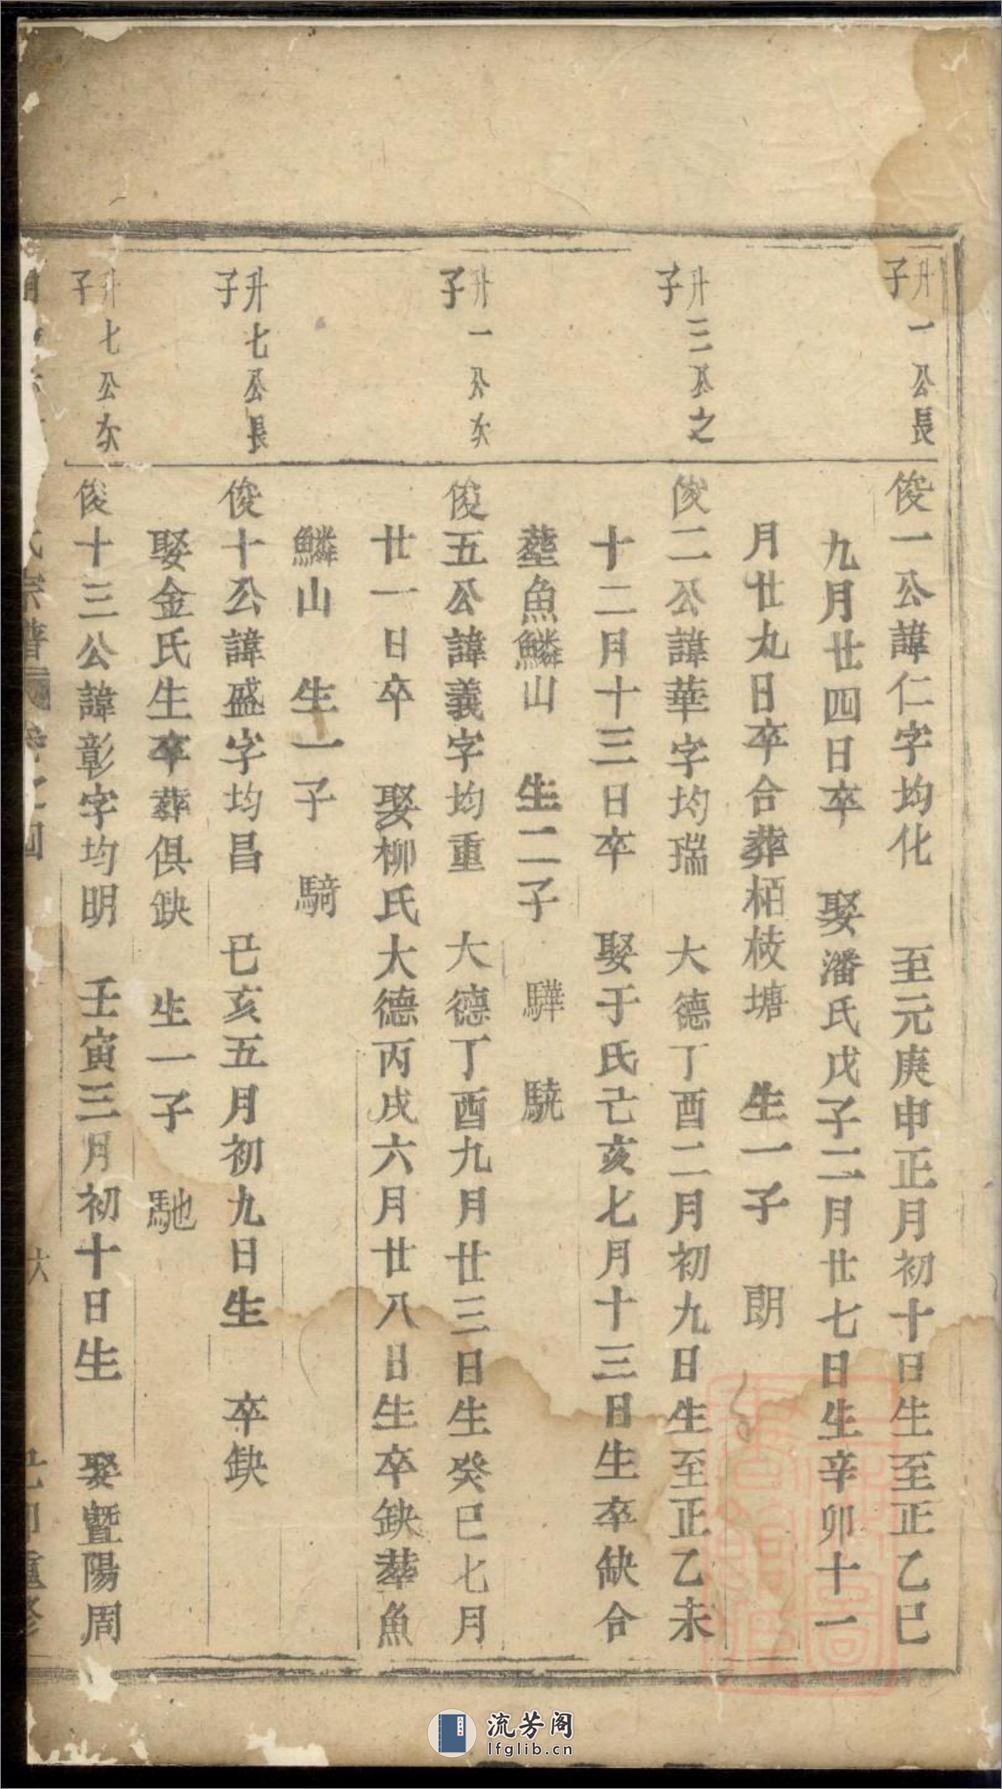 升一公長
子
俊一公諱仁字均化　至元庚申正月初十日生至正乙巳
九月廿四日卒　娶潘氏戊子二月廿七日生辛卯十一
月廿九日卒合葬栢枝塘　生一子　朗
升三公之
子
俊二公諱華字均瑞　大德丁酉二月初九日生至正乙未
十二月十三日卒　娶于氏己亥七月十三日生卒缺合
塟魚鱗山　生二子　驊　驍
升一公次
子
俊五公諱義字均重　大德丁酉九月廿三日生癸巳七月
廿一日卒　娶柳氏大德丙戌六月廿八日生卒缺葬魚
鱗山　生一子　騎
升七公長
子
俊十公諱盛字均昌　己亥五月初九日生　卒缺
娶金氏生卒葬俱缺　生一子　馳
升七公次
子
俊十三公諱彰字均明　壬寅三月初十日生　娶暨陽周
氏宗譜　卷之四　六　己卯重修
流芳阁
lfglib.cn